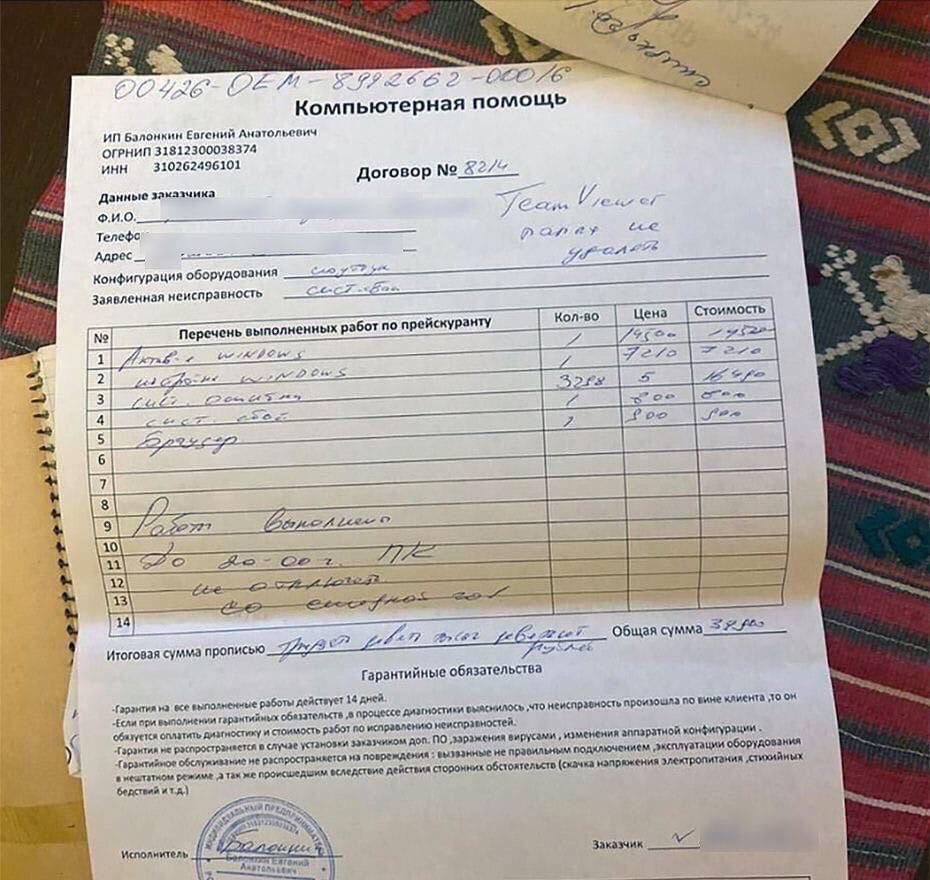 00426-OEM-8992662-00016
Компьютерная помощь
ИП Балонкин Евгений Анатольевич
ОГРНИП 31812300038374
ИНН 310262496101
Договор № 8214
Данные заказчика
TeamViewer
папку не
удалять
Ф.И.О.
Телефо
Адрес
Конфигурация оборудования ноутбук
Заявленная неисправность сист. сбой
№ Перечень выполненных работ по прейскуранту Кол-во Цена Стоимость
1 Актив-я WINDOWS 1 14500 14500
2 WINDOWS 1 7210 7210
3 сист. ошибки 3298 5 16490
4 сист. сбой 1 800 800
5 браузер 1 900 900
6
7
8
9 Работы выполнены
10
11 До 20-00 ч. ПК
12 не отключать
13
14
Итоговая сумма прописью рублей Общая сумма
Гарантийные обязательства
-Гарантия на все выполненные работы действует 14 дней.
-Если при выполнении гарантийных обязательств ,в процессе диагностики выяснилось ,что неисправность произошла по вине клиента ,то он
обязуется оплатить диагностику и стоимость работ по исправлению неисправностей.
-Гарантия не распространяется в случае установки заказчиком доп. ПО ,заражения вирусами , изменения аппаратной конфигурации .
-Гарантийное обслуживание не распространяется на повреждения : вызванные не правильным подключением ,эксплуатации оборудования
в нештатном режиме ,а так же происшедшим вследствие действия сторонних обстоятельств (скачка напряжения электропитания ,стихийных
бедствий и т.д.)
ИНДИВИДУАЛЬНЫЙ ПРЕДПРИНИМАТЕЛЬ
Исполнитель Балонкин
Балонкин Евгений
Анатольевич
Заказчик